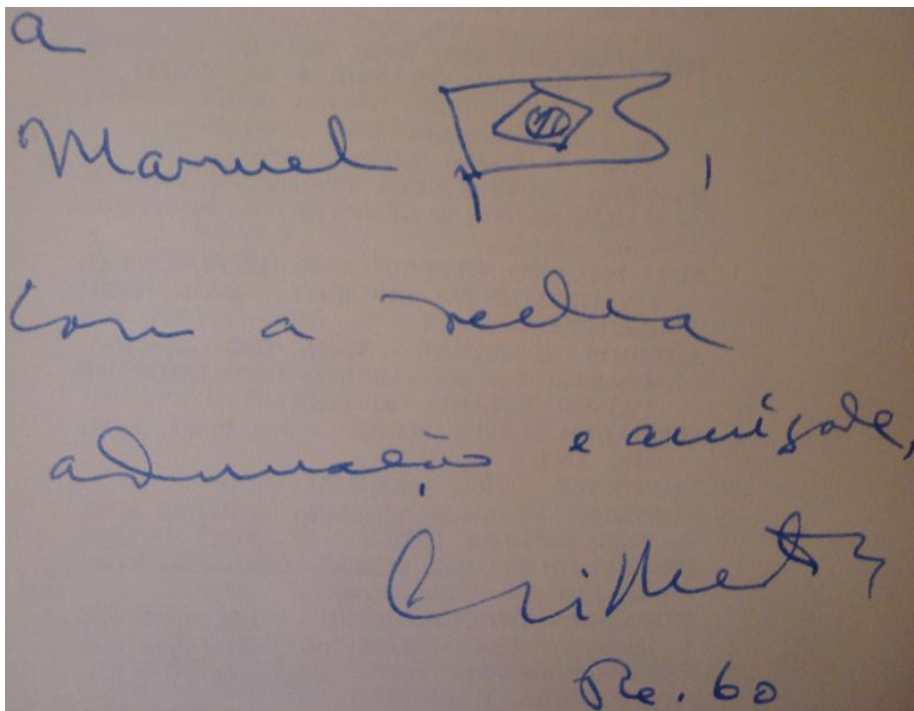 a
Manuel ,
com a velha
admiração e amizade,
Gilberto
Re. 60